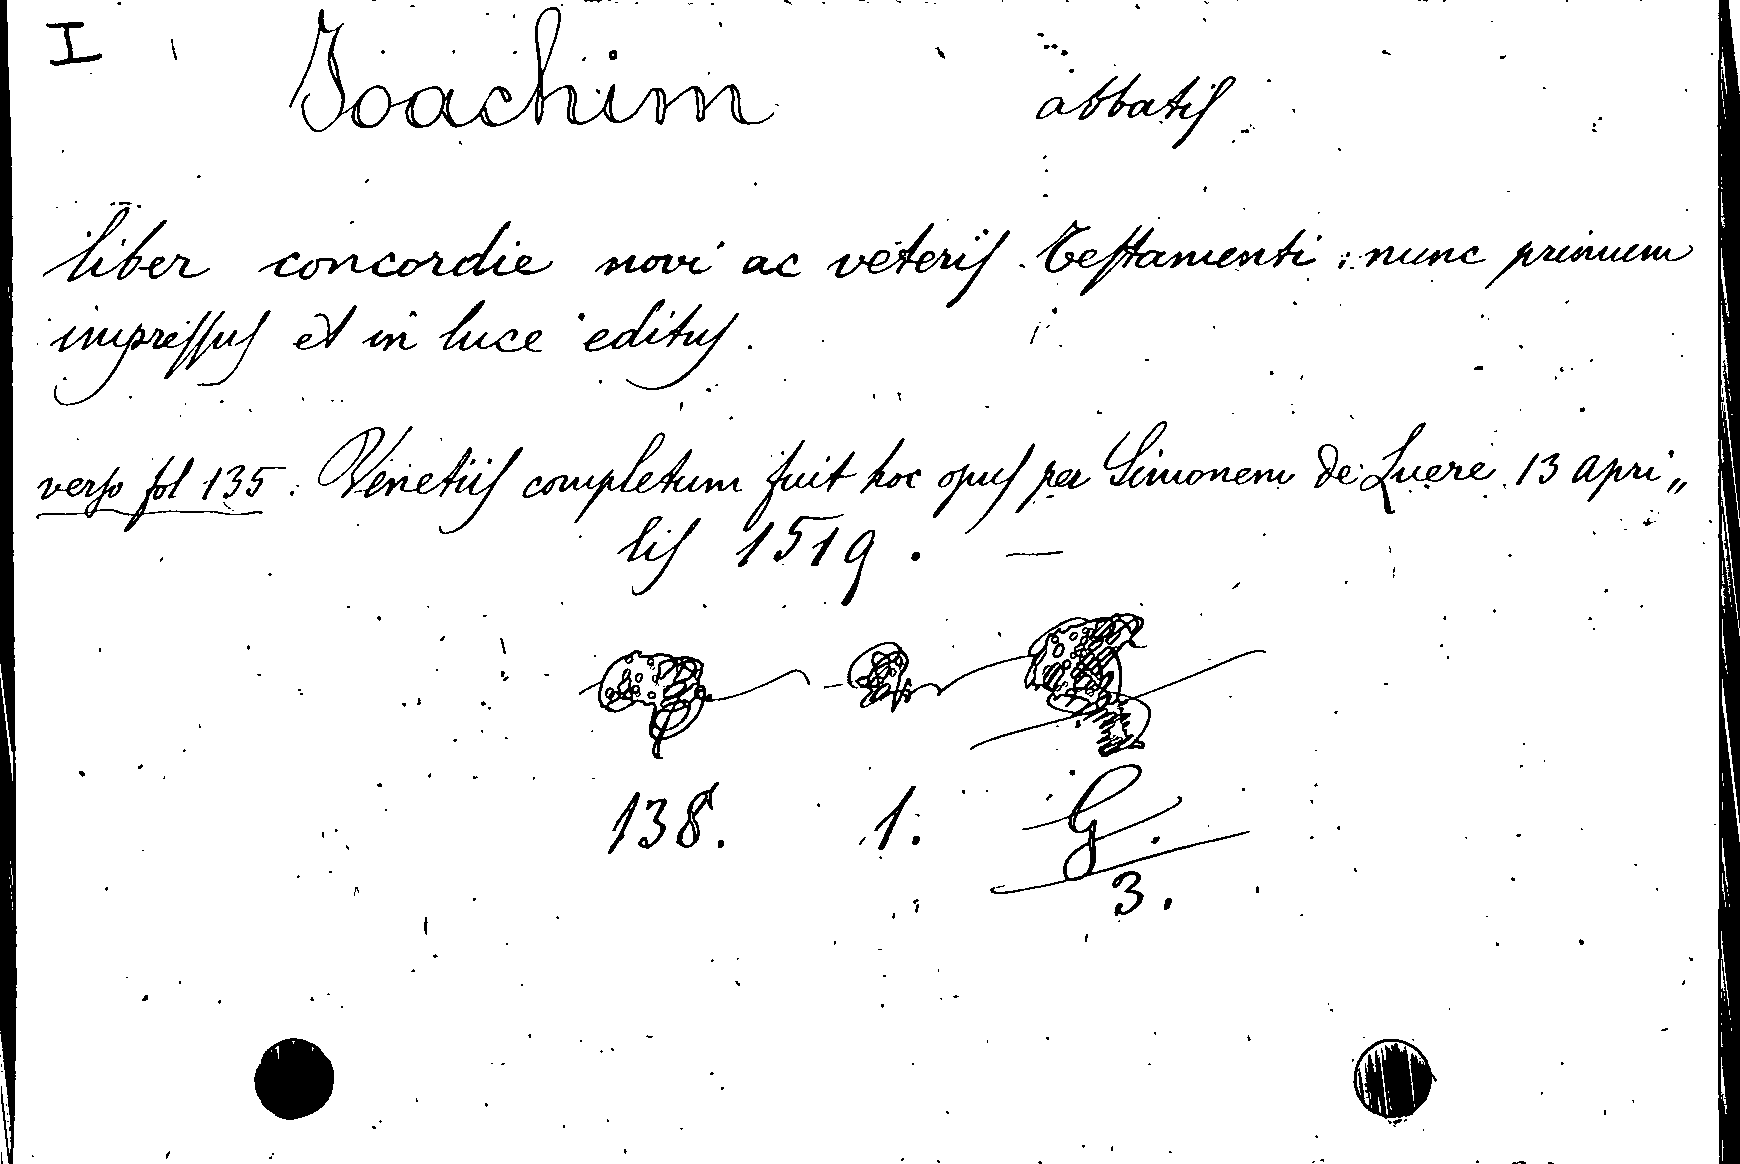 I
Joachim abbatis
liber concordie novi ac veteris Testamenti: nunc primum
impressus et in luce editus.
verso fol 135. Venetiis completum fuit hoc opus per Simonem de Luere 13 apri„
lis 1519. —
138. 1. G.
3.